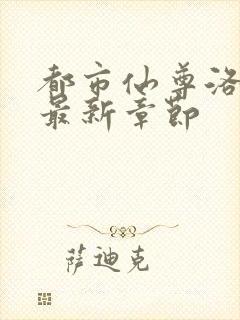 都市仙尊洛
最新章节
萨迪克